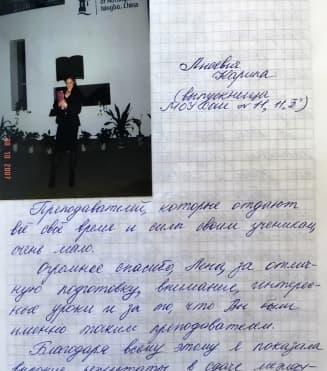 Ningbo, China
Карина
(выпускница
МОУ СОШ № 11, 11 "З")
20 10 2007
Преподавателей, которые отдают
всё своё время и силы своим ученикам
очень мало.
Огромное спасибо, Лена, за отлич-
ную подготовку, внимание, интерес-
ные уроки и за то, что Вы были
именно таким преподавателем.
Благодаря всему этому я показала
высокие результаты в сдаче между-